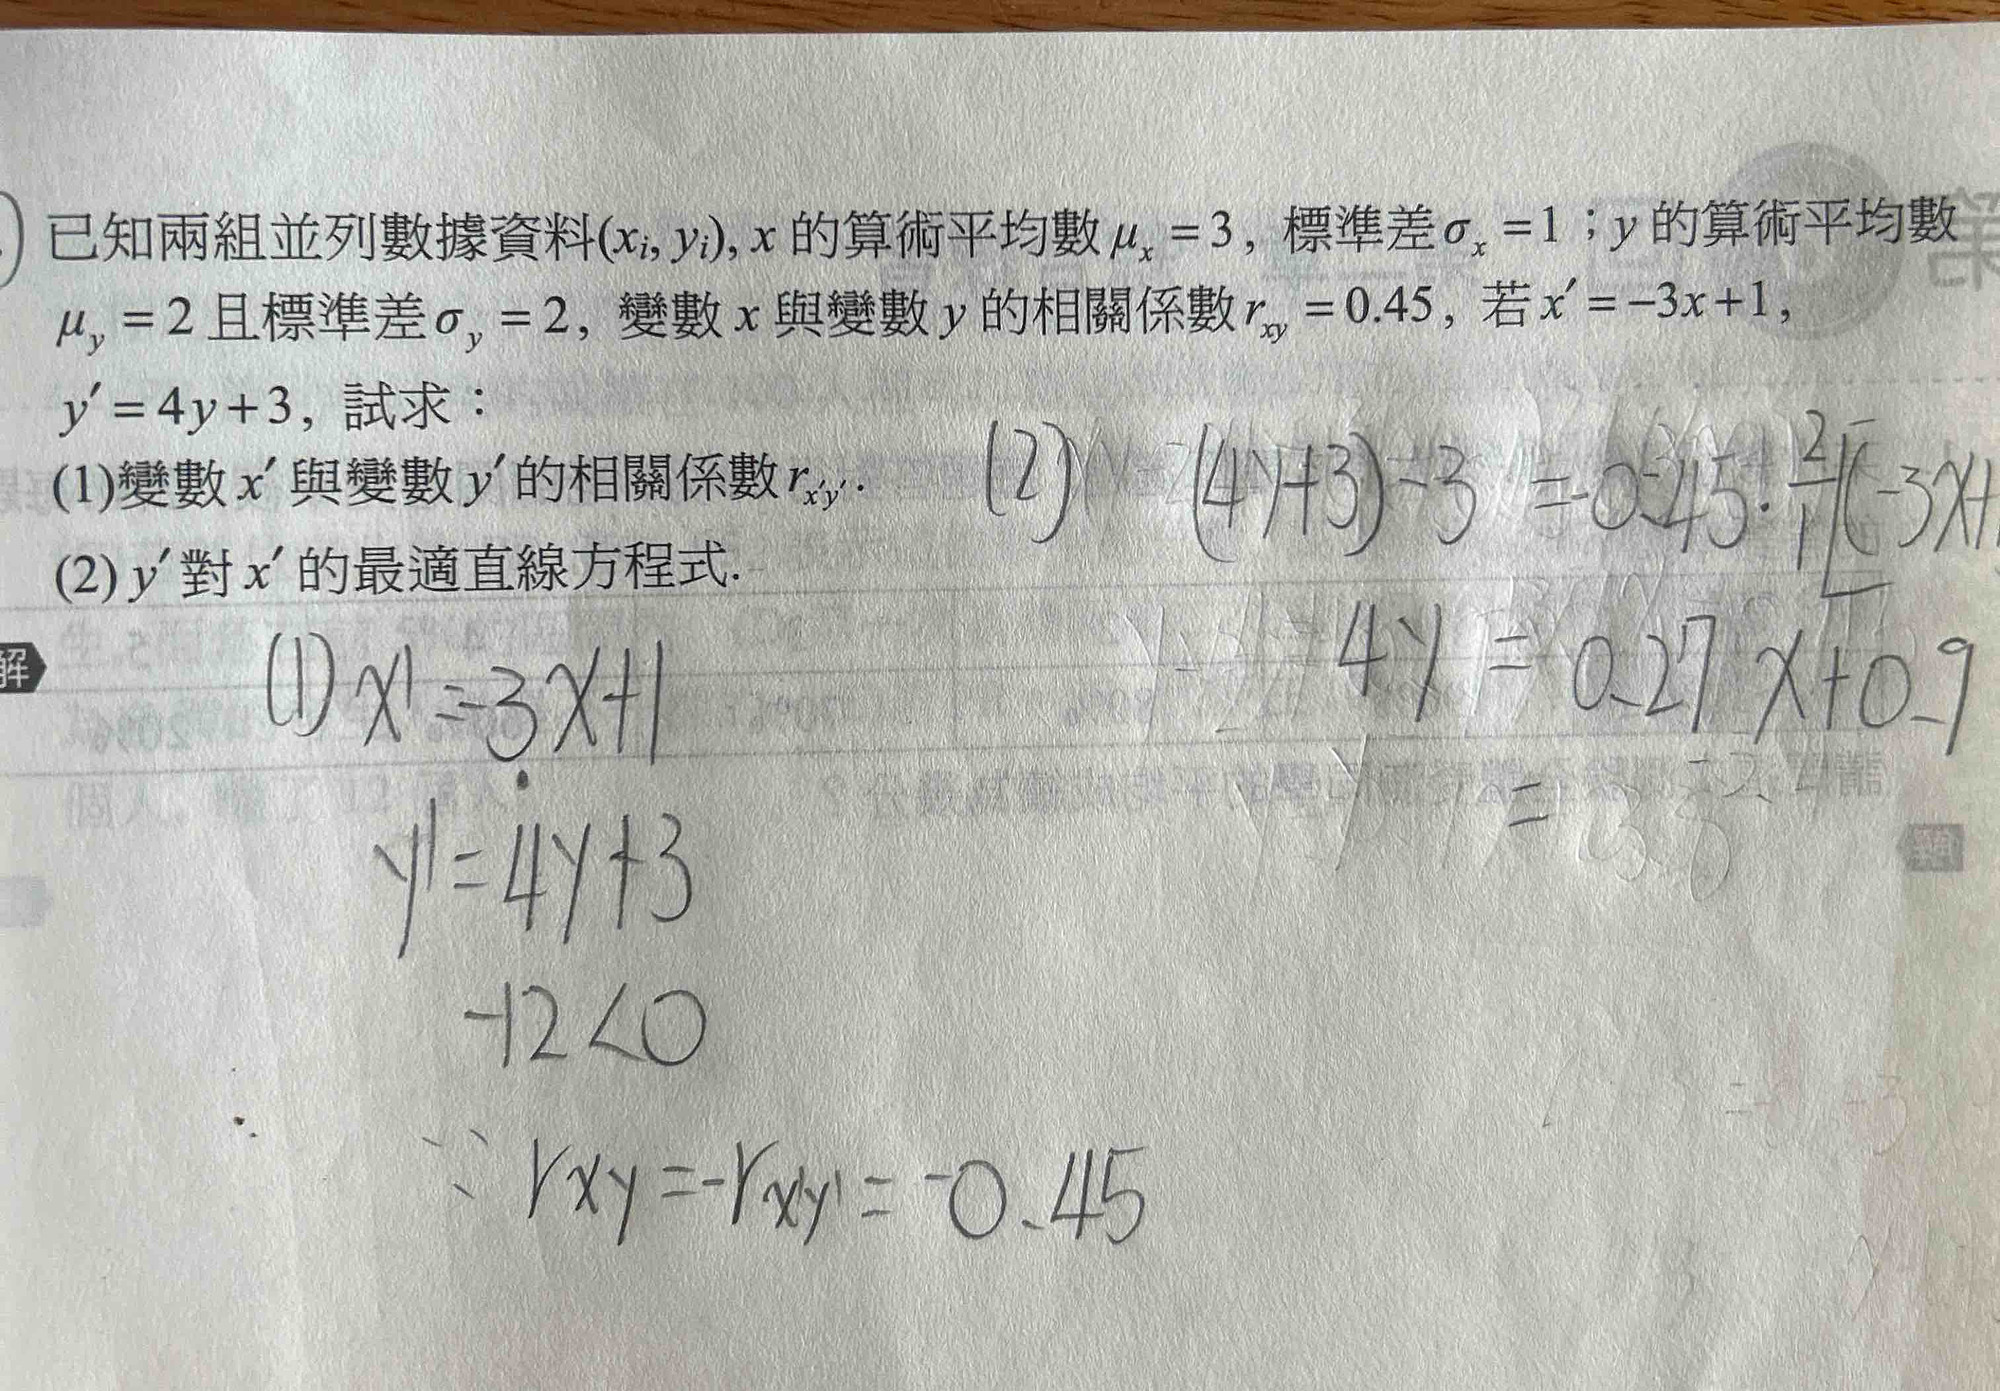 已知兩組並列數據資料(xᵢ, yᵢ), x 的算術平均數 μₓ = 3, 標準差 σₓ = 1；y 的算術平均數
μ_y = 2 且標準差 σ_y = 2, 變數 x 與變數 y 的相關係數 r_xy = 0.45, 若 x′ = −3x+1,
y′ = 4y+3, 試求：
(1)變數 x′ 與變數 y′ 的相關係數 r_x′y′.
(2) y′ 對 x′ 的最適直線方程式.
解
(1) x' = -3x+1
y' = 4y+3
-12<0
∵ rxy = -rx'y' = -0.45
(2) (4y+3)-3 = -0.45·2/1[(-3x+1
4y = 0.27x+0.9
=